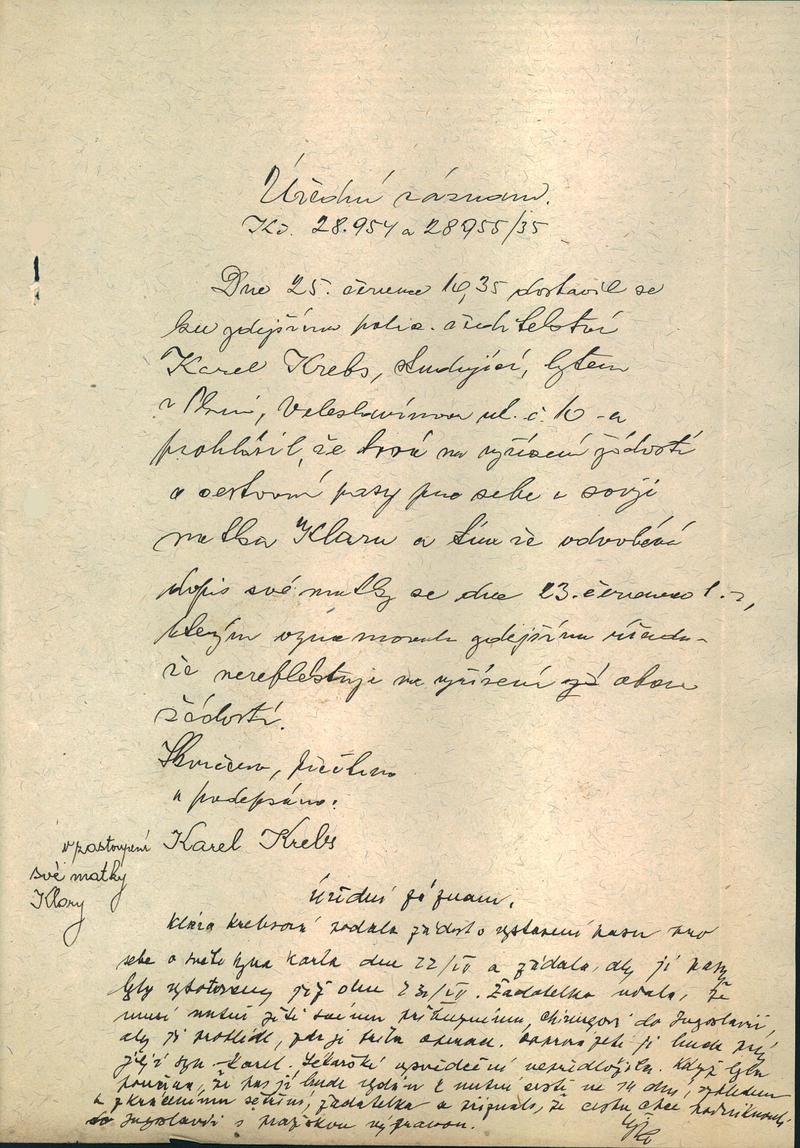 Úřední záznam.
Kd. 28.954 a 28955/35
Dne 25. července 19,35 dostavil se
ku zdejšímu polic. ředitelství
Karel Krebs, studující, bytem
v Plzni, Veleslavínova ul. č. 10 a
prohlásil, že trvá na vyřízení žádosti
o cestovní pasy pro sebe i svoji
matku Klaru a tím že odvolává
dopis své matky ze dne 23. července t. r.,
kterým oznamovala zdejšímu úřadu
že nereflektuje na vyřízení obou
žádostí.
Skončeno, přečteno
a podepsáno:
Karel Krebs
v zastoupení
své matky
Klary
Úřední záznam.
Klára Krebsová podala žádost o vystavení pasu pro
sebe a svého syna Karla dne 22/IV a žádala, aby jí pasy
byly vyhotoveny již dne 23/IV. Žadatelka udala, že
musí nutně jeti svému příbuznému, chirurgovi do Jugoslavii,
aby ji prohlédl, zda je třeba operace. Doprovázeti ji bude prý
její syn Karel. Lékařské vysvědčení nepředložila. Když byla
poučena, že pas jí bude vydán k nutné cestě na 14 dnů, vzhledem
k zkrácenému šetření, žadatelka přiznala, že cestu chce podniknouti
do Jugoslavii s pražskou výpravou.